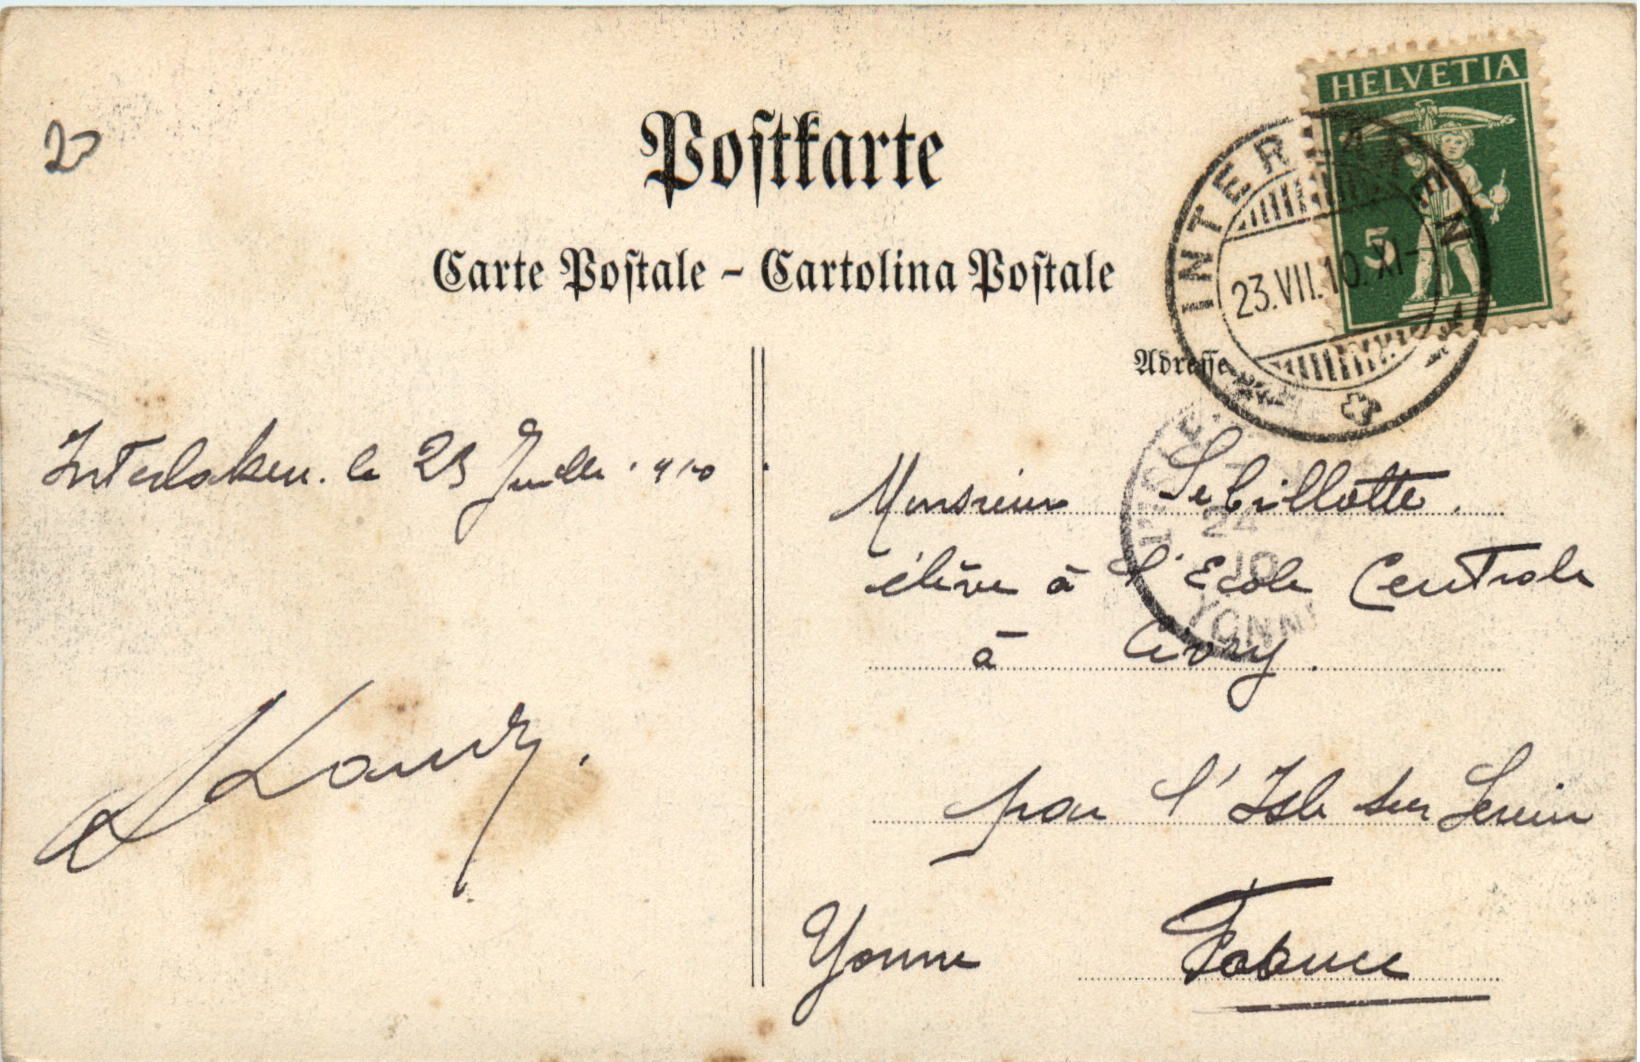 HELVETIA
5
20
Postkarte
Carte Postale - Cartolina Postale
INTERLAKEN
23.VII.10.XI-
Adresse
YONNE
24
10
Interlaken. le 23 Juillet 910
Monsieur Sebillotte.
élève à l'Ecole Centrale
à Civry.
par l'Isle sur Serein
Yonne France